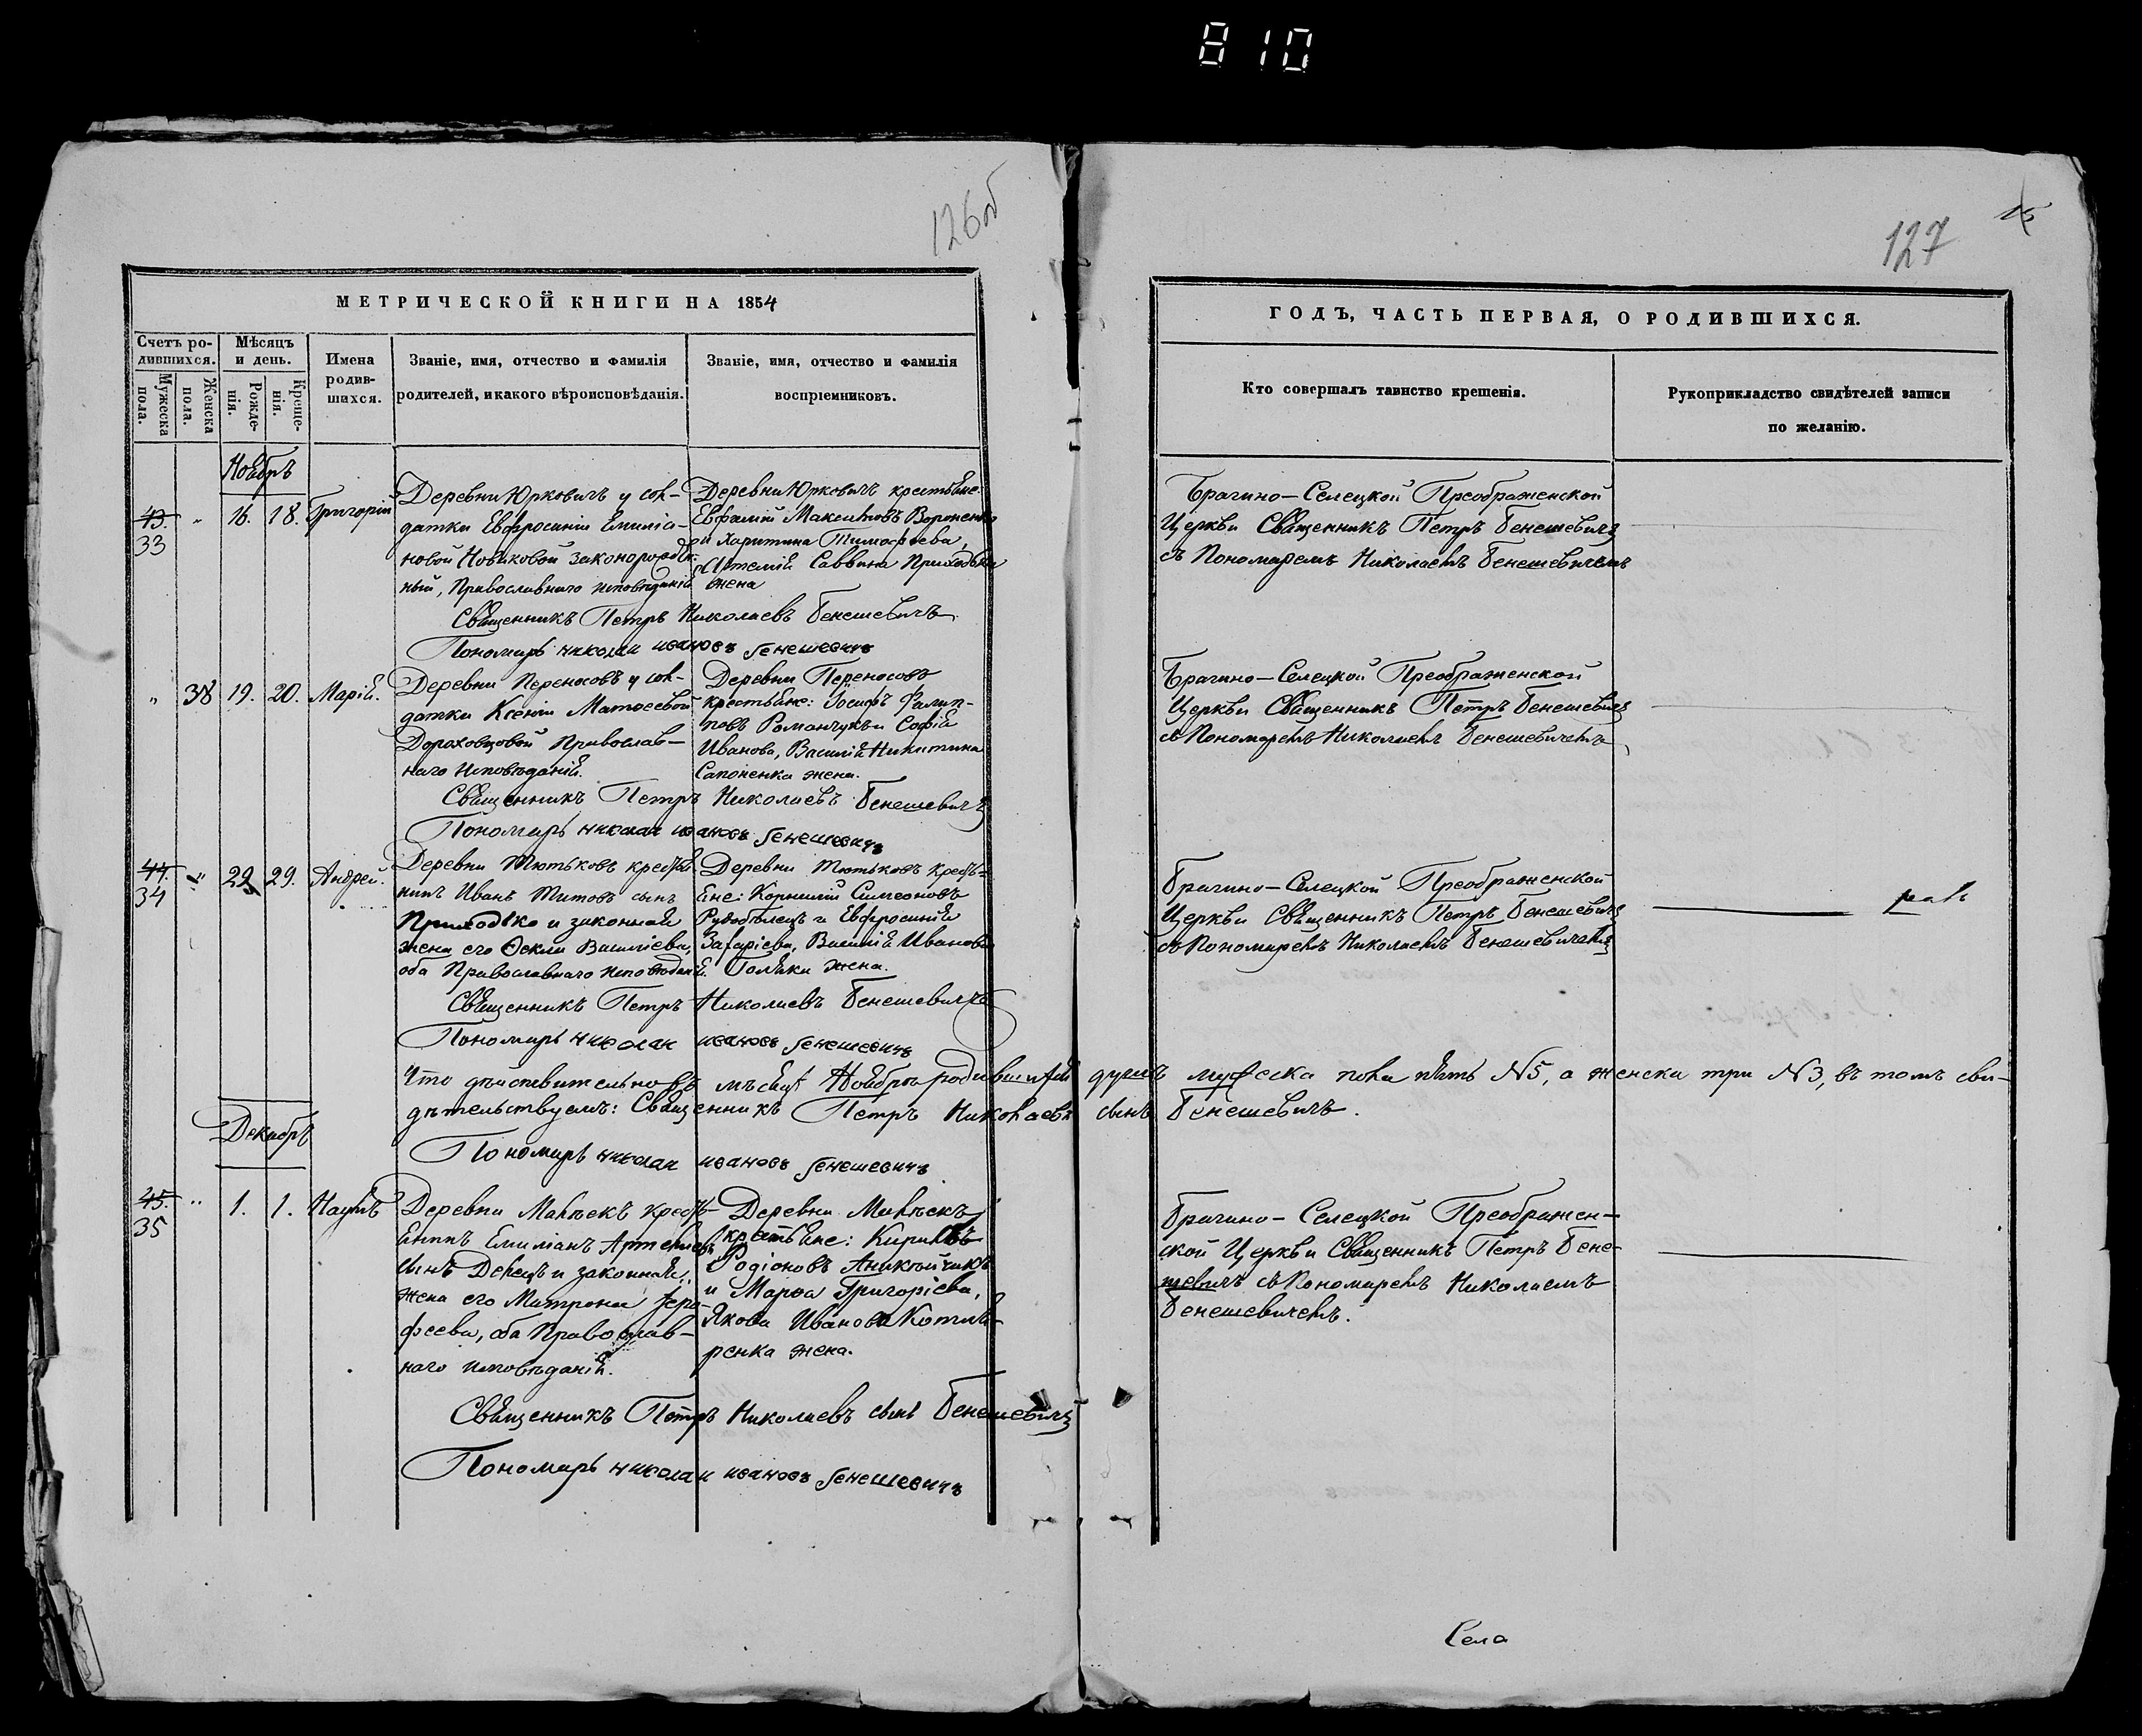 810
126об
127
МЕТРИЧЕСКОЙ КНИГИ НА 1854
Счетъ родившихся.
Мужеска пола.
Женска пола.
Мѣсяцъ и день.
Рожденія.
Крещенія.
Имена родившихся.
Званіе, имя, отчество и фамилія
родителей, и какого вѣроисповѣданія.
Званіе, имя, отчество и фамилія
воспріемниковъ.
ГОДЪ, ЧАСТЬ ПЕРВАЯ, О РОДИВШИХСЯ.
Кто совершалъ таинство крещенія.
Рукоприкладство свидѣтелей записи
по желанію.
Ноябрь
43.
33
16.
18.
Григорій
Деревни Юрковичъ у сол-
датки Евфросиніи Емиліа-
новой Новиковой законорожден-
ный, Православнаго исповѣданія
Деревни Юрковичъ крестьяне:
Максимовъ Вороненко
и Харитина Тимофѣева,
Артемія Саввина Приходька
жена
Священникъ Петръ Николаевъ Бенешевичъ
Пономарь Николай Ивановъ Бенешевичъ
Брагино-Селецкой Преображенской
Церкви Священникъ Петръ Бенешевичъ
съ Пономаремъ Николаемъ Бенешевичемъ
38
19.
20.
Марія.
Деревни Переносовъ у сол-
датки Ксеніи Матвеевой
Дороховцовой Православ-
наго исповѣданія.
Деревни Переносовъ
крестьяне: Іосифъ Филип-
повъ Романчукъ и Софія
Иванова, Василія Никитина
Сапоненка жена.
Священникъ Петръ Николаевъ Бенешевичъ
Пономарь Николай Ивановъ Бенешевичъ
Брагино-Селецкой Преображенской
Церкви Священникъ Петръ Бенешевичъ
съ Пономаремъ Николаемъ Бенешевичемъ
44.
34
29
29.
Андрей.
Деревни Тютьковъ кресть-
нинъ Иванъ Титовъ сынъ
Приходько и законная
жена его Ѳекла Василіева,
оба Православнаго исповѣданія.
Деревни Тютьковъ кресть-
яне: Корнилій Симеоновъ
Рудобѣлецъ и Евфросинія
Захаріева, Василія Иванова
Голяки жена.
Священникъ Петръ Николаевъ Бенешевичъ
Пономарь Николай Ивановъ Бенешевичъ
Брагино-Селецкой Преображенской
Церкви Священникъ Петръ Бенешевичъ
съ Пономаремъ Николаемъ Бенешевичемъ
Что дѣйствительно въ мѣсяцѣ Ноябрѣ родившихся душъ мужеска пола пять №5, а женска три №3, въ томъ сви-
дѣтельствуемъ: Священникъ Петръ Николаевъ сынъ Бенешевичъ.
Пономарь Николай Ивановъ Бенешевичъ
Декабрь
45.
35
1.
1.
Наумъ
Деревни Малѣекъ кресть-
янинъ Емиліанъ Артемьевъ
сынъ Денецъ и законная
жена его Матрона Іеро-
феева, оба Православ-
наго исповѣданія.
Деревни Малѣекъ
крестьяне: Кириллъ
Родіоновъ Аникійчикъ
и Марѳа Григоріева,
Якова Иванова Котля-
ренка жена.
Священникъ Петръ Николаевъ сынъ Бенешевичъ
Пономарь Николай Ивановъ Бенешевичъ
Брагино-Селецкой Преображен-
ской Церкви Священникъ Петръ Бене-
шевичъ съ Пономаремъ Николаемъ
Бенешевичемъ.
Села